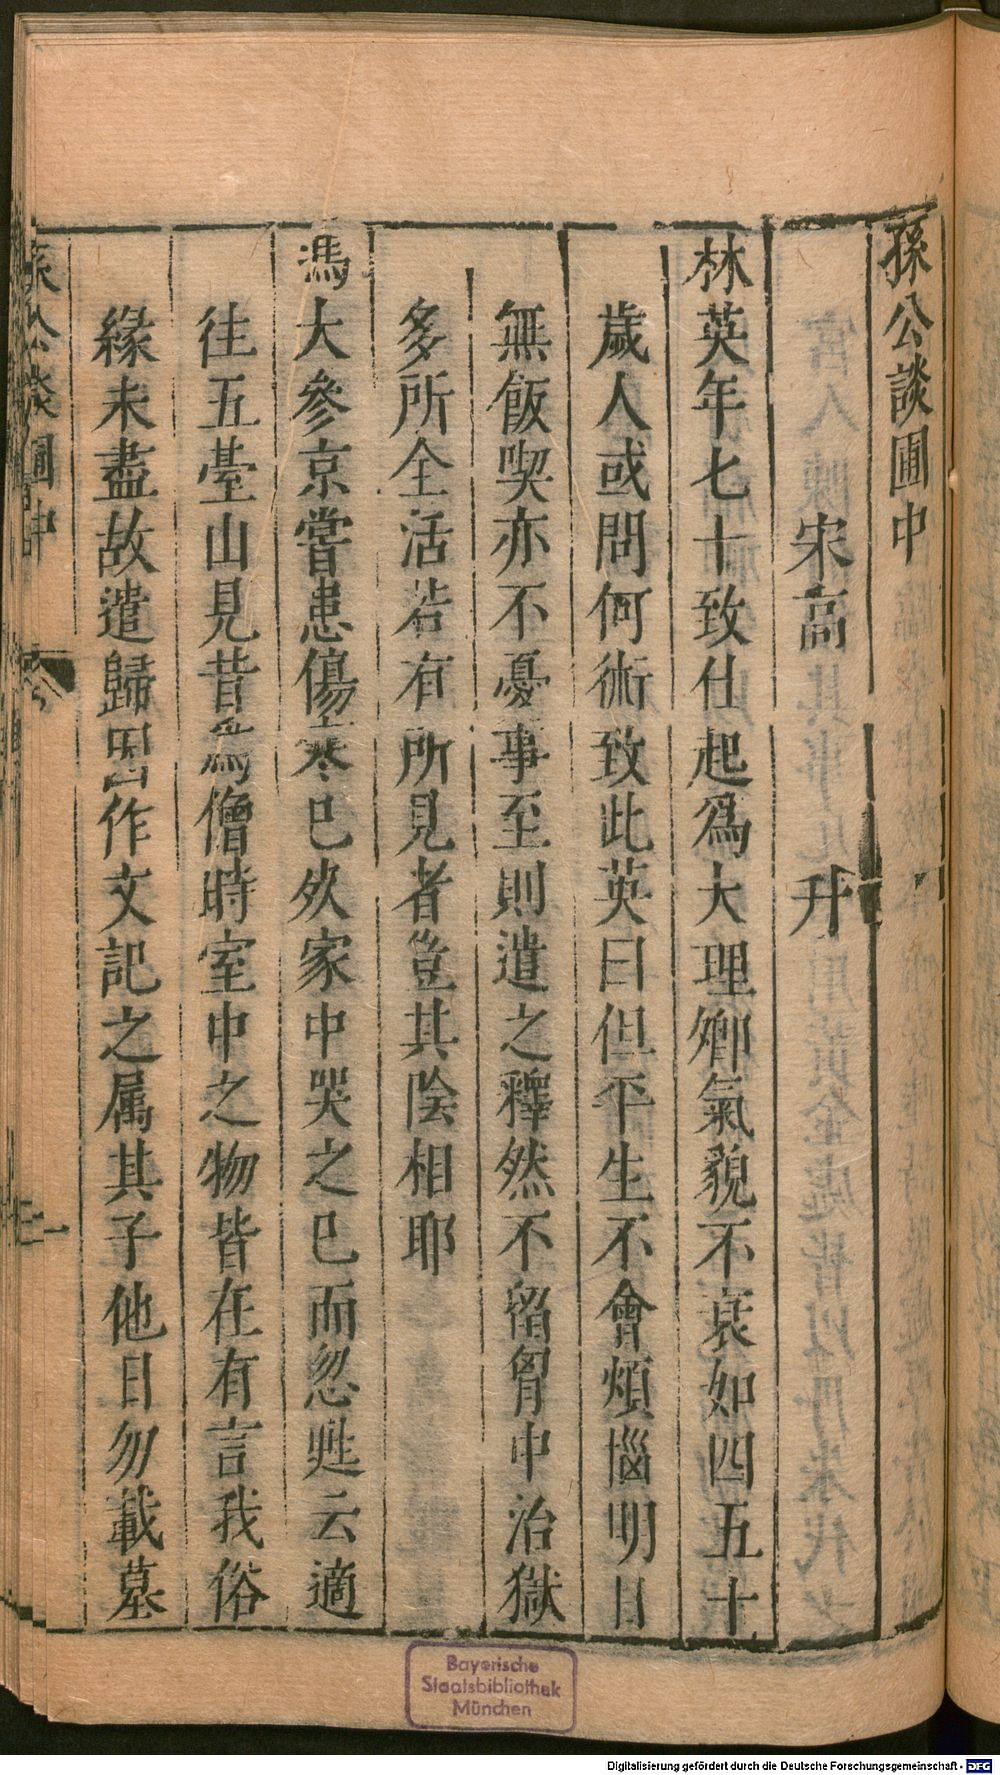 孫公談圃中
宋高　升
林英年七十致仕起爲大理卿氣貌不衰如四五十
歲人或問何術致此英曰但平生不會煩惱明日
無飯喫亦不憂事至則遣之釋然不留胷中治獄
多所全活若有所見者豈其陰相耶
馮大參京嘗患傷寒已死家中哭之已而忽甦云適
往五臺山見昔爲僧時室中之物皆在有言我俗
緣未盡故遣歸因作文記之属其子他日勿載墓
孫公談圃中
Bayerische
Staatsbibliothek
München
Digitalisierung gefördert durch die Deutsche Forschungsgemeinschaft - DFG